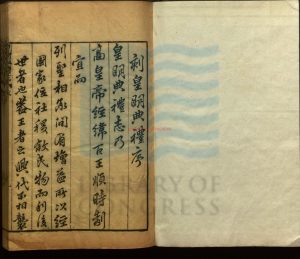 刻皇明典禮序
皇明典禮志乃
高皇帝經緯百王順時制
宜而
列聖相承間有增益所以經
國家住社稷叙民物而利後
世者也蓋王者之興代不相襲
LIBRARY OF
CONGRESS